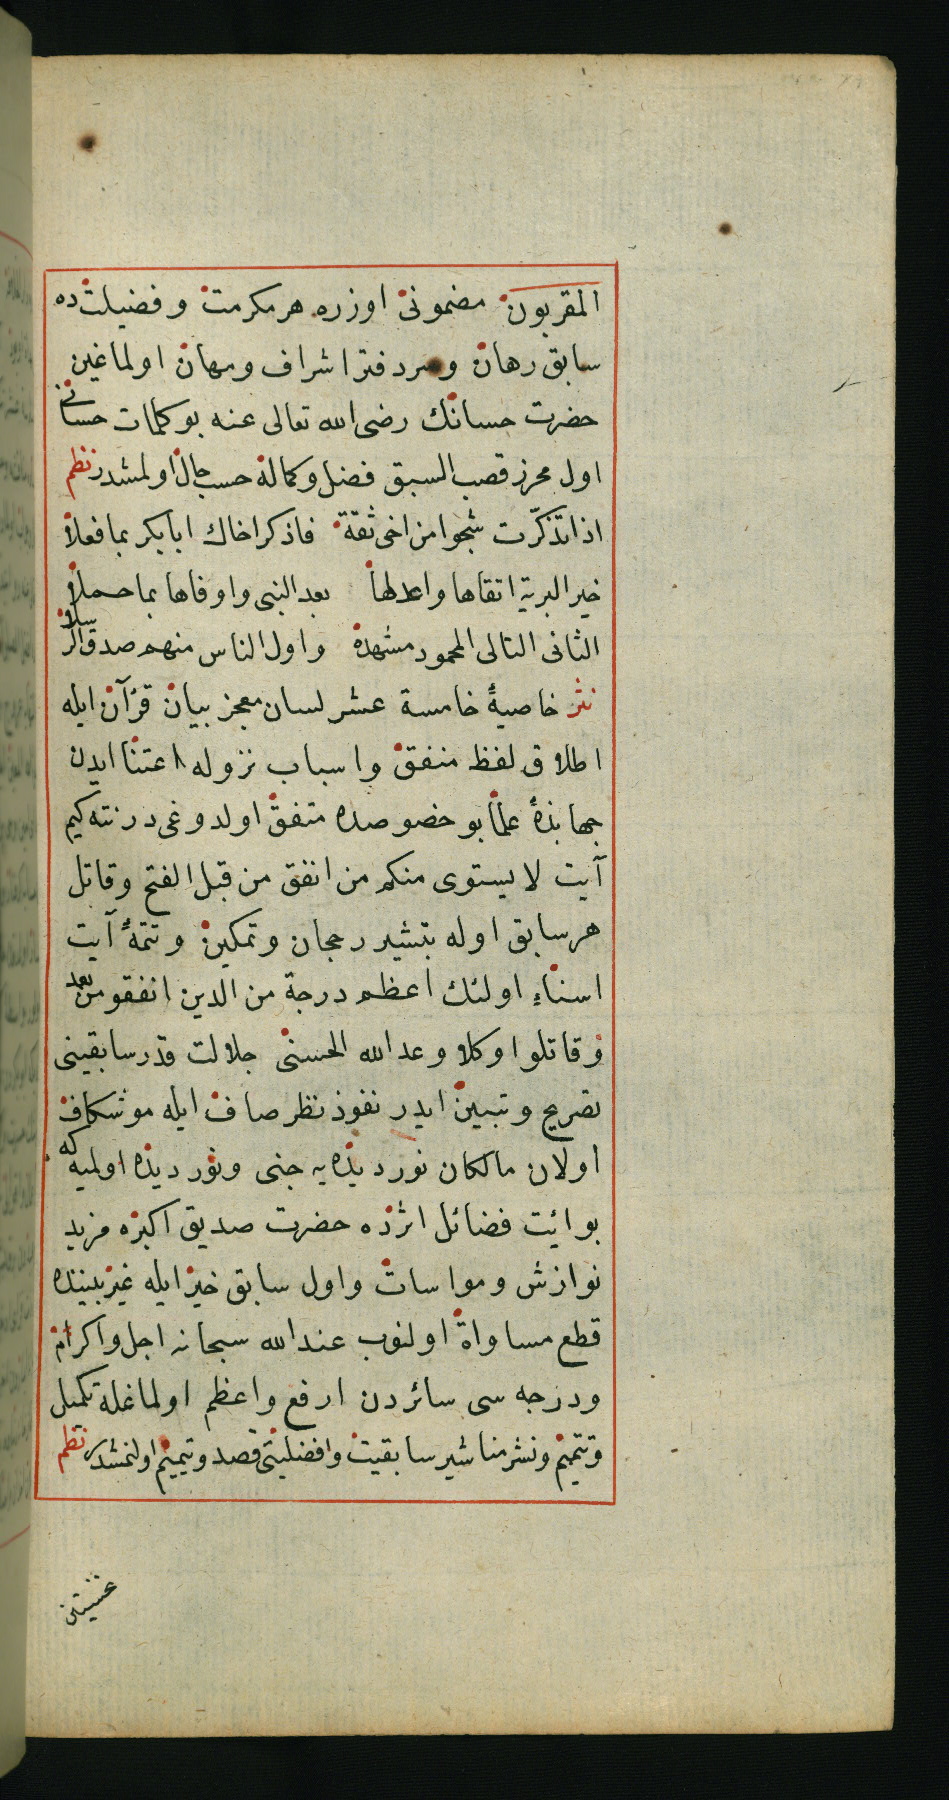 المقربون مضمونی اوزره هر مكرمت و فضیلت ده
سابق رهان و سر دفتر اشراف ومهان اولماغین
حضرت حسانك رضی الله تعالی عنه بو كلمات حسانی
اول محرز قصب السبق فضل وكماله حسب حال اولمشدر نظم
اذا تذكّرت شجوا من اخی ثقة فاذكر اخاك ابابكر بما فعلا
خیر البریة اتقاها واعدلها بعد النبی واوفاها بما حملا
الثانی التالی المحمود مشهده واول الناس منهم صدق الرسلا
نثر خاصیهٔ خامسة عشر لسان معجز بیان قرآن ایله
اطلاق لفظ منفق واسباب نزوله اعتنا ایدن
جهابذهٔ علما بو خصوصده متفق اولدوغی در نته كیم
آیت لا یستوی منكم من انفق من قبل الفتح وقاتل
هر سابق اوله بتشیر رجحان وتمكین وتتمهٔ آیت
اسناء اولئك اعظم درجة من الذین انفقو من بعد
وقاتلوا وكلا وعد الله الحسنی جلالت قدر سابقینی
تصریح وتبیین ایدر نفوذ نظر صاف ایله موشكاف
اولان مالكان نور دیده یه جنی ونور دیده اولمیه كه
بو ائیت فضائل اثرده حضرت صدیق اكبره مزید
نوازش ومواسات واول سابق خیر ایله غیر بیننده
قطع مساواة اولنوب عند الله سبحانه اجل واكرام
ودرجه سی سائردن ارفع واعظم اولماغله تكمیل
وتتمیم ونشر مناشیر سابقیت وافضلیتی قصد وتیمیم اولنمشدر نظم